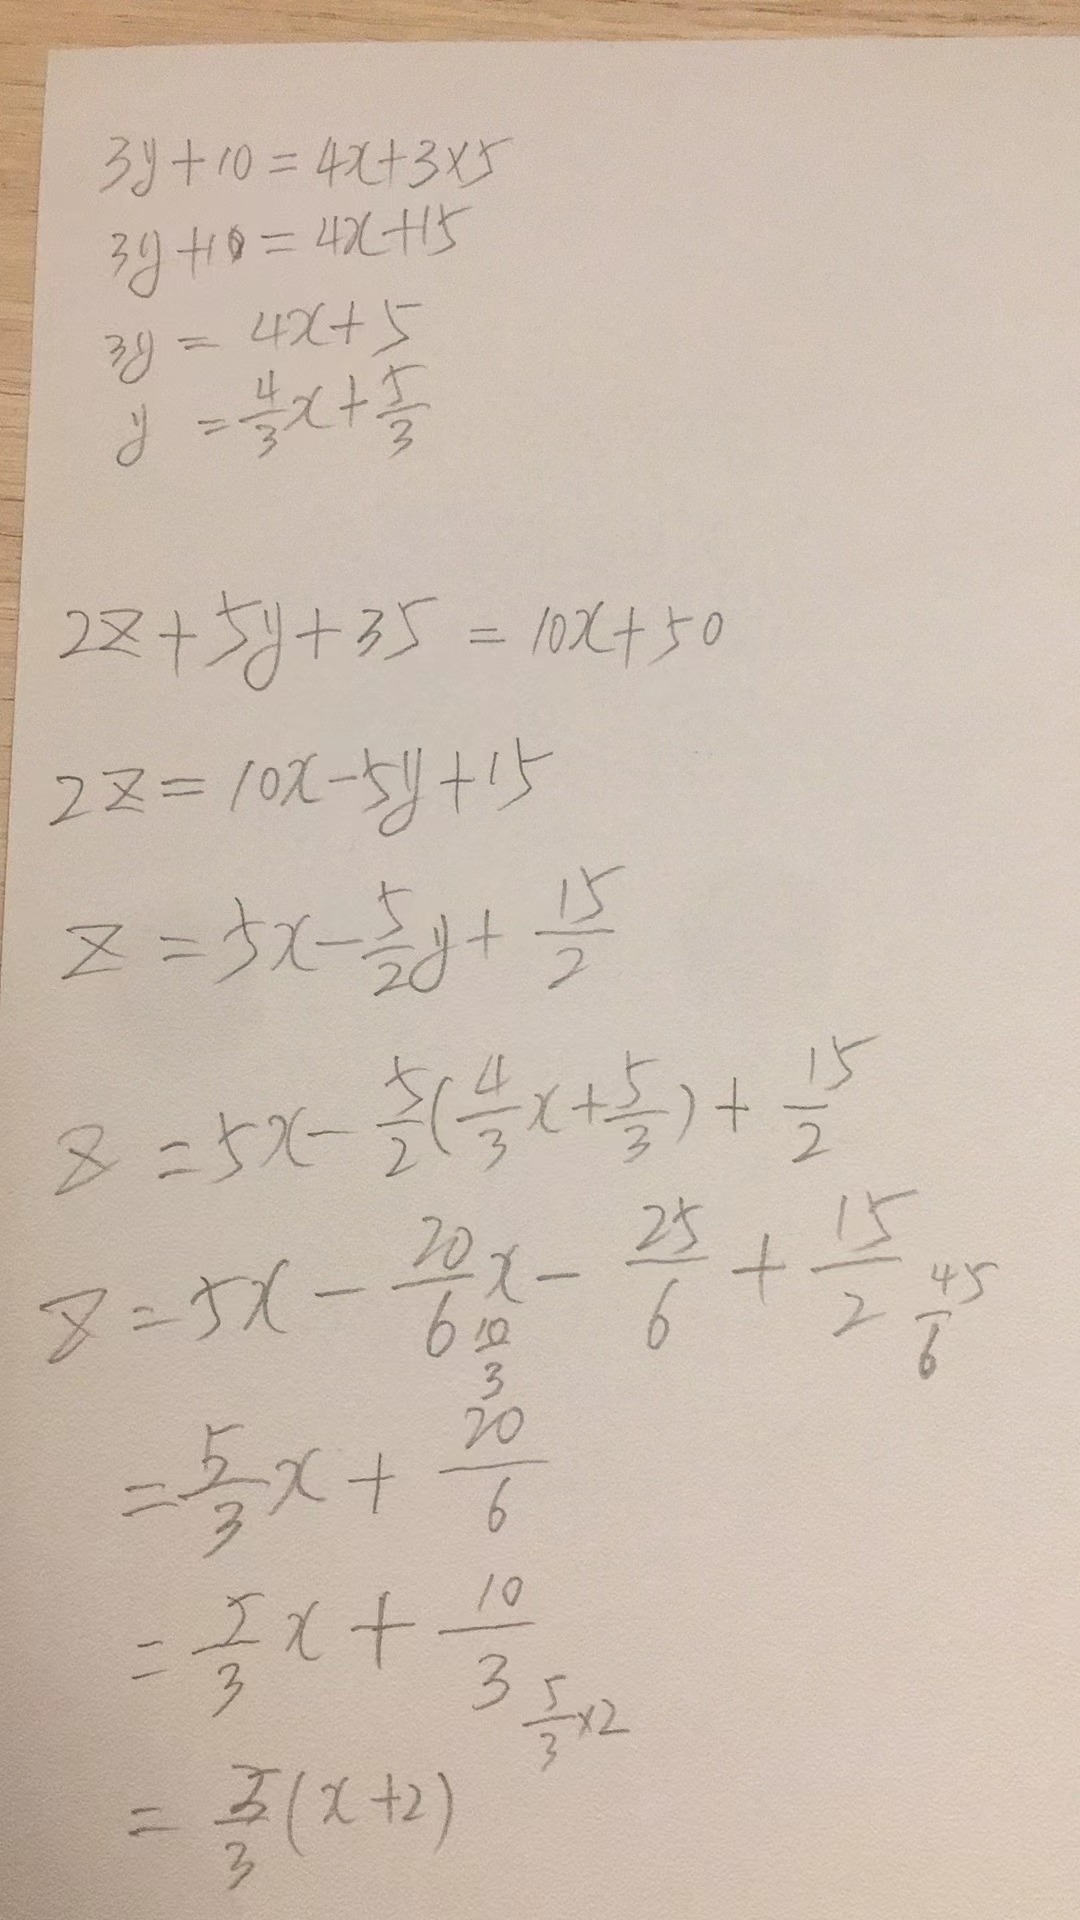 3y+10=4x+3×5
3y+10=4x+15
3y=4x+5
y=4/3x+5/3
2z+5y+35=10x+50
2z=10x-5y+15
z=5x-5/2y+15/2
z=5x-5/2(4/3x+5/3)+15/2
z=5x-20/6x-25/6+15/2 45/6
10/3
=5/3x+20/6
=5/3x+10/3
5/3×2
=5/3(x+2)